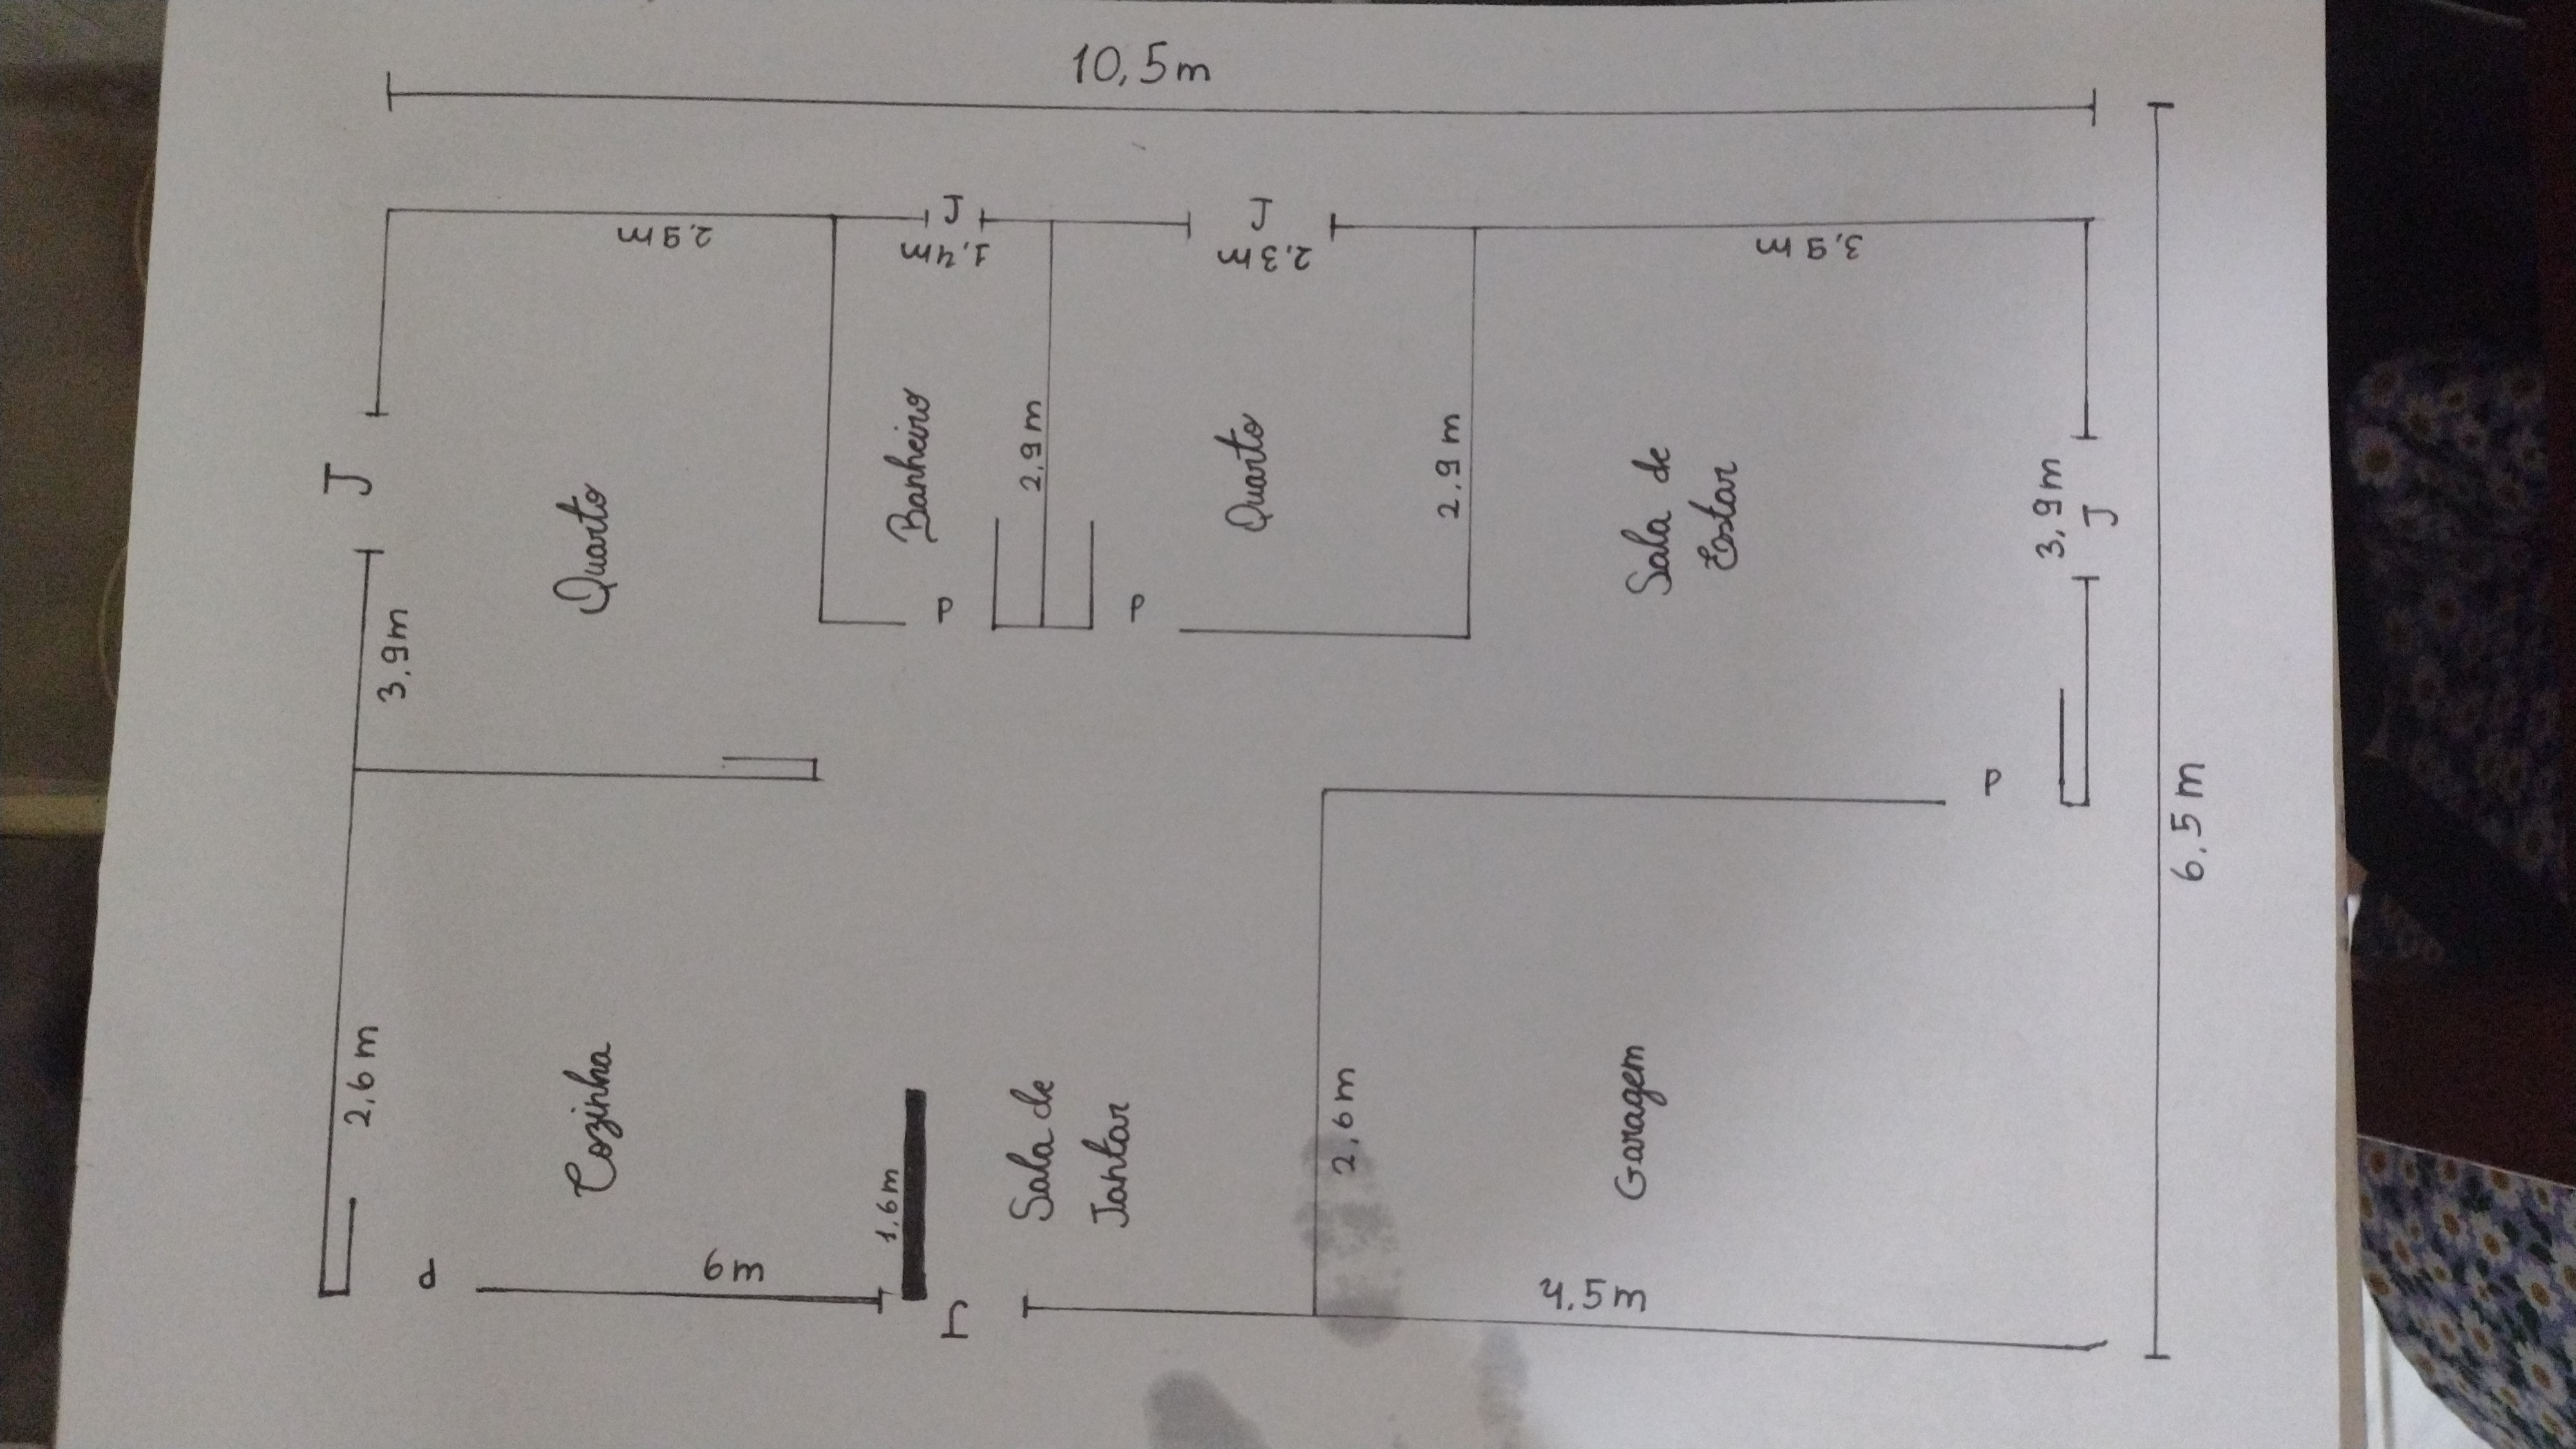 2,6 m
3,9m
J
P
Cozinha
Quarto
2,9m
6m
1,6m
Banheiro
1,4m
J
P
J
Sala de
Jantar
2,9 m
10,5m
P
Quarto
2,3m
J
2,6 m
2,9 m
4,5m
Garagem
Sala de
Estar
3,9m
P
3,9m
J
6,5 m